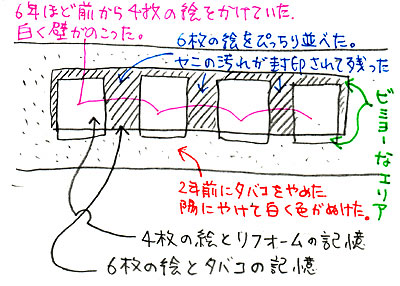 6年ほど前から4枚の絵をかけていた。
白く壁がのこった。
6枚の絵をぴっちり並べた。
ヤニの汚れが封印されて残った
ビミョーなエリア
2年前にタバコをやめた
陽にやけて白く色がぬけた。
4枚の絵とリフォームの記憶
6枚の絵とタバコの記憶